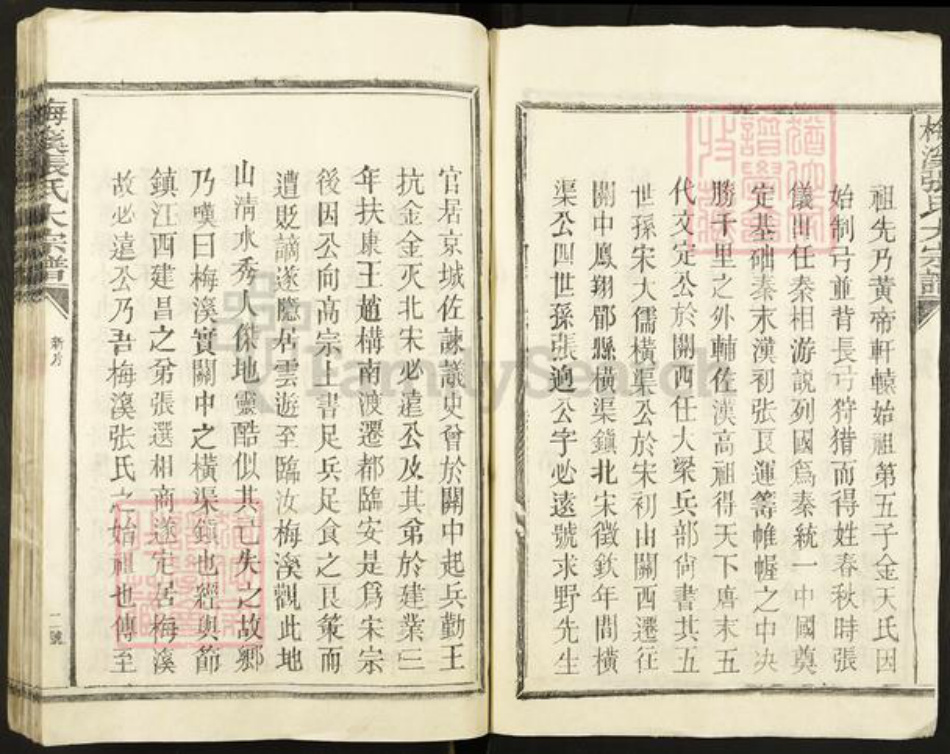 梅溪張氏大宗譜
祖先乃黃帝軒轅始祖第五子金天氏因
始制弓並背長弓狩猎而得姓春秋時張
儀出任秦相游說列國爲秦統一中國奠
定基础秦末漢初张良運籌帷幄之中决
勝千里之外輔佐漢高祖得天下唐末五
代文定公於關西任大梁兵部尙書其五
世孫宋大儒橫渠公於宋初由關西遷往
關中鳳翔郿縣橫渠鎮北宋徵欽年間橫
渠公四世孫張逈公字必遠號求野先生
官居京城佐諫議史曾於關中起兵勤王
抗金金灭北宋必遠公及其弟於建炎三
年扶康王趙構南渡遷都臨安是爲宋宗
後因公向高宗上書足兵足食之良策而
遭貶謫遂隱居雲遊至臨汝梅溪觀此地
山清水秀人傑地靈酷似其已失之故鄉
乃嘆曰梅溪實關中之橫渠鎮也經與節
鎮江西建昌之弟張選相商遂定居梅溪
故必遠公乃吾梅溪张氏之始祖也傳至
梅溪張氏大宗譜
新序
二號
FamilySearch